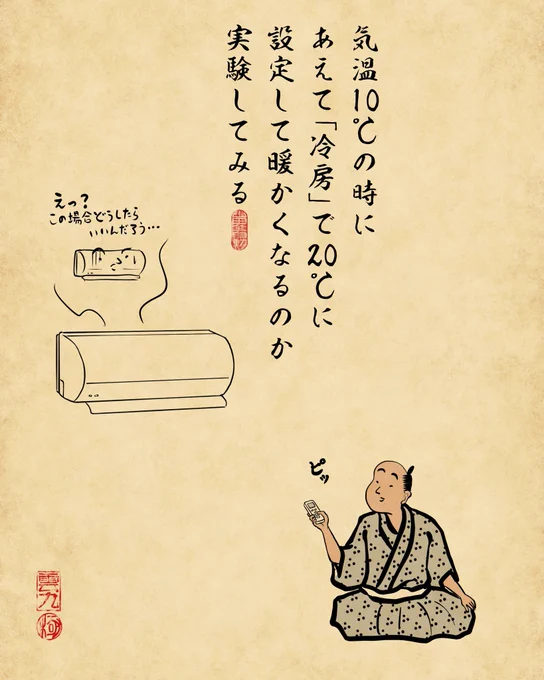 気温10℃の時に
あえて「冷房」で20℃に
設定して暖かくなるのか
実験してみる
えっ?
この場合どうしたら
いいんだろう…
ピッ